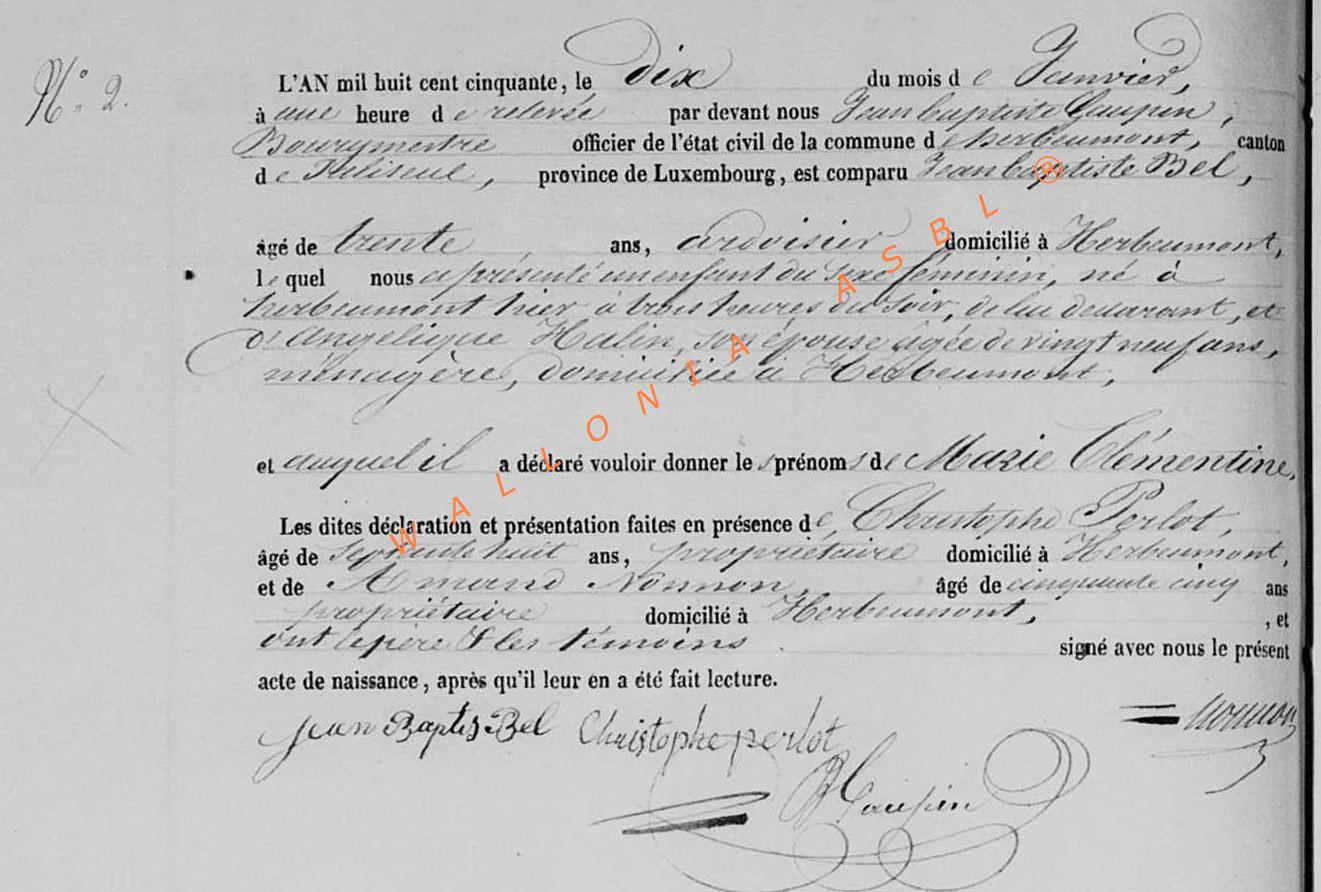 N° 2.
L'AN mil huit cent cinquante, le dix du mois de Janvier,
à une heure de relevée par devant nous Jean baptiste Caupin,
Bourgmestre officier de l'état civil de la commune d'herbeumont, canton
de Paliseul, province de Luxembourg, est comparu Jean baptiste Bel,
âgé de trente ans, ardoisier domicilié à Herbeumont,
lequel nous a présenté un enfant du sexe féminin, né à
herbeumont hier, à trois heures du soir, de lui déclarant, et
d'Angelique Halin, son épouse âgée de vingt neuf ans,
ménagère, domiciliée à Herbeumont,
et auquel il a déclaré vouloir donner les prénoms de Marie Clémentine,
Les dites déclaration et présentation faites en présence de Christophe Perlot,
âgé de septante huit ans, propriétaire domicilié à Herbeumont,
et de Amand Nonnon, âgé de cinquante cinq ans
propriétaire domicilié à Herbeumont, , et
ont le père & les témoins signé avec nous le présent
acte de naissance, après qu'il leur en a été fait lecture.
Jean Baptis Bel Christophe perlot nonnon
Caupin
WALLONIA ASBL ®